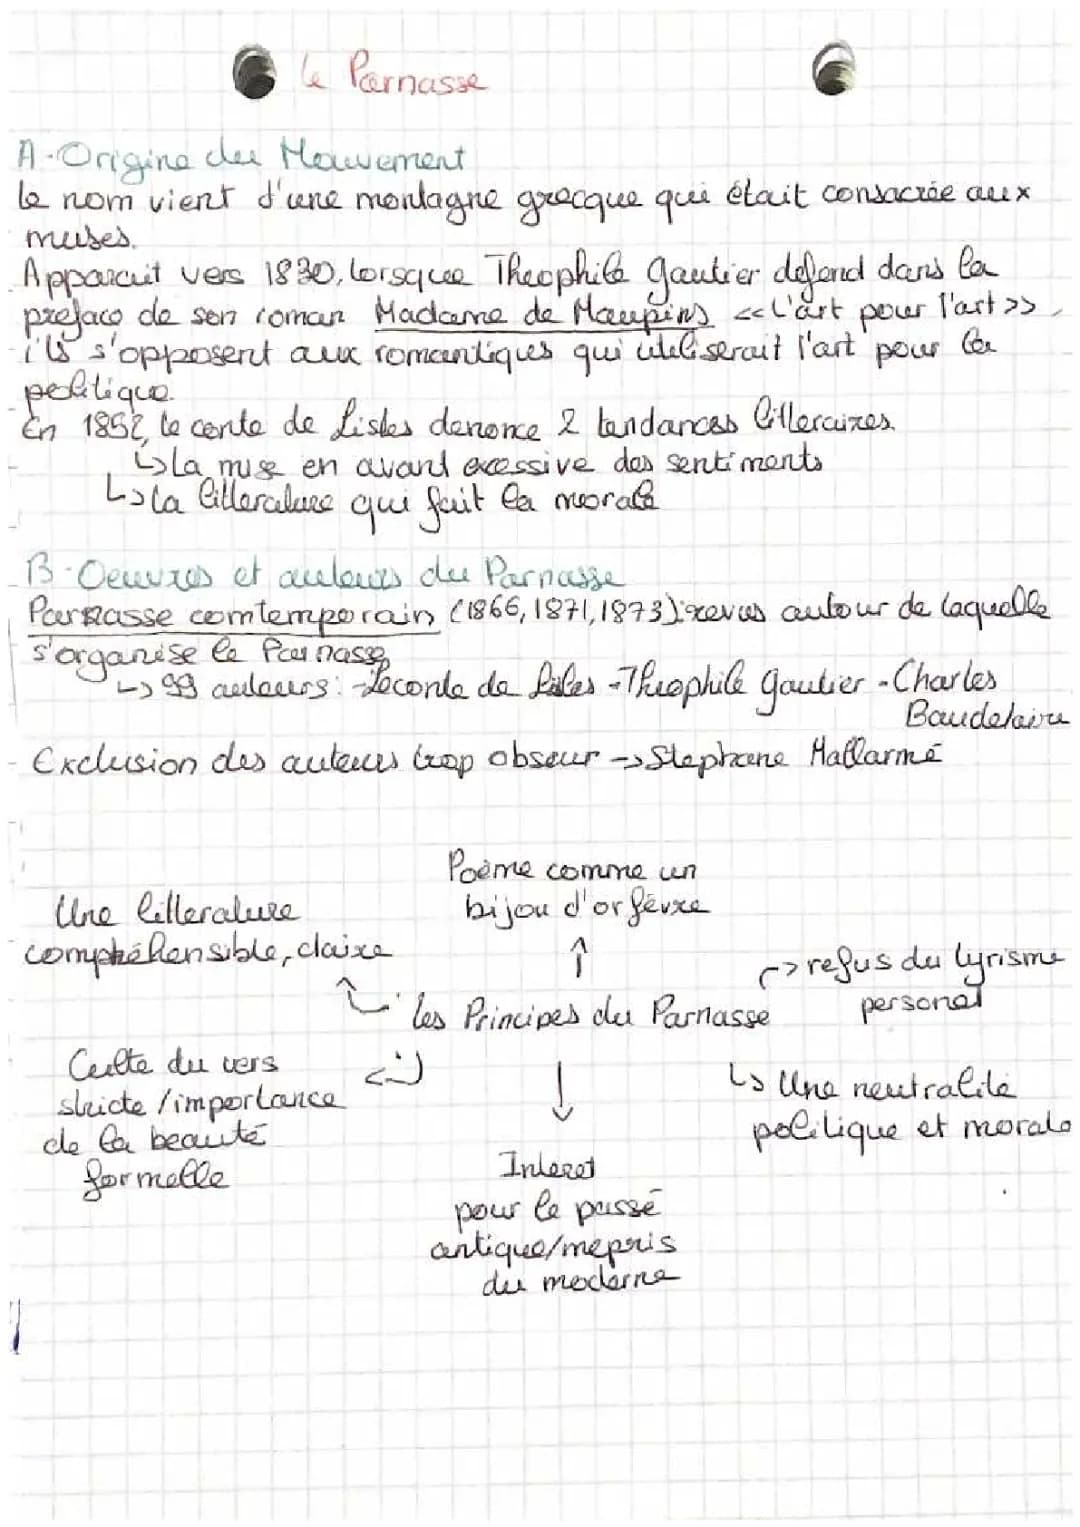 le Parnasse
A-Origine du Mouvement
le nom vient d'une montagne grecque qui était consacrée aux
muses.
Apparait vers 1830, lorsque Theophile Gautier defend dans la
preface de son roman Madame de Maupins <<L'art pour l'art>>,
ils s'opposent aux romantiques qui utiliserait l'art pour la
politique.
En 1852, le conte de Lisles denonce 2 tendances litteraires.
↳la mise en avant excessive des sentiments
↳la litterature qui fait la morale
B-Oeuvres et auteurs du Parnasse
Parnasse comtemporain (1866, 1871, 1873): revus autour de laquelle
s'organise le Parnasse
↳ 99 auteurs: -Leconte de Lisles -Theophile Gautier -Charles
Baudelaire
Exclusion des auteurs trop obscur -> Stephane Mallarmé
Poème comme un
bijou d'orfèvre
Une litterature
compréhensible, claire
↑
-> refus du lyrisme
personel
les Principes du Parnasse
Culte du vers
stricte / importance
de la beauté
formelle
↓
↳ Une neutralité
politique et morale
Interet
pour le passé
antique/mepris
du moderne